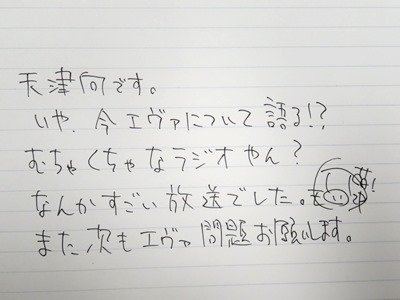 天津向です。
いや、今エヴァについて語る!?
むちゃくちゃなラジオやん?
なんかすごい放送でした。
また次もエヴァ問題お願いします。